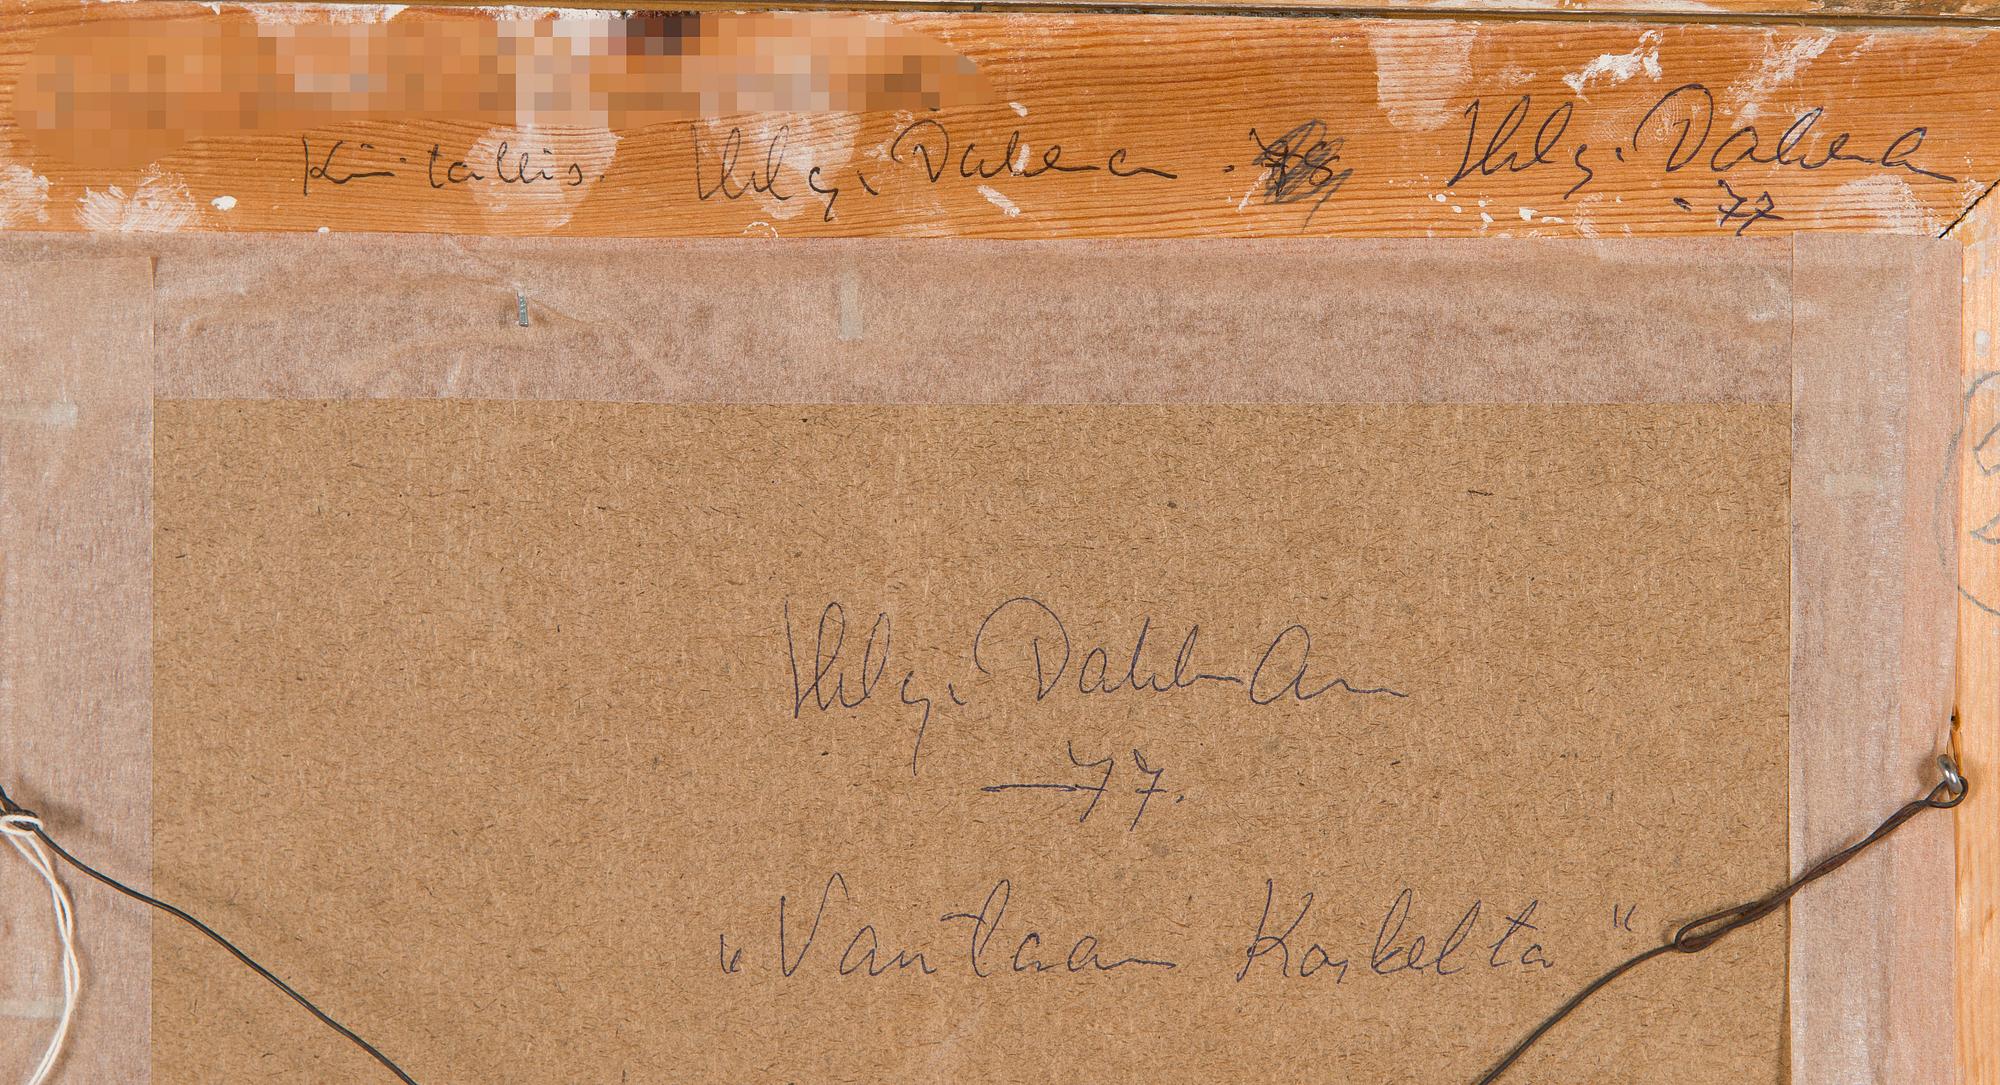 Kiitollis. Helge Dahlman Helge Dahlman
-77
Helge Dahlman
-77.
"Vantaan Koskelta"